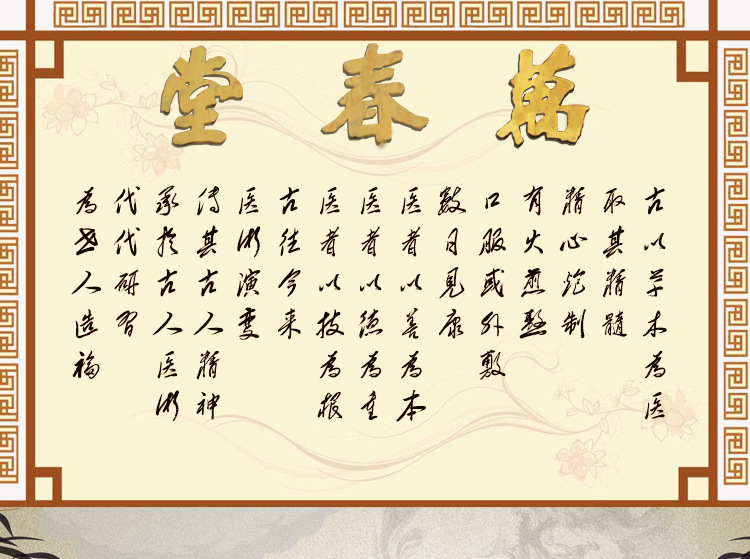 萬春堂
古以草木為医
取其精髓
精心炮制
有火煎熬
口服或外敷
數日見康
医者以善為本
医者以德為重
医者以技為根
古往今来
医術演變
傳其古人精神
承於古人医術
代代研習
為世人造福